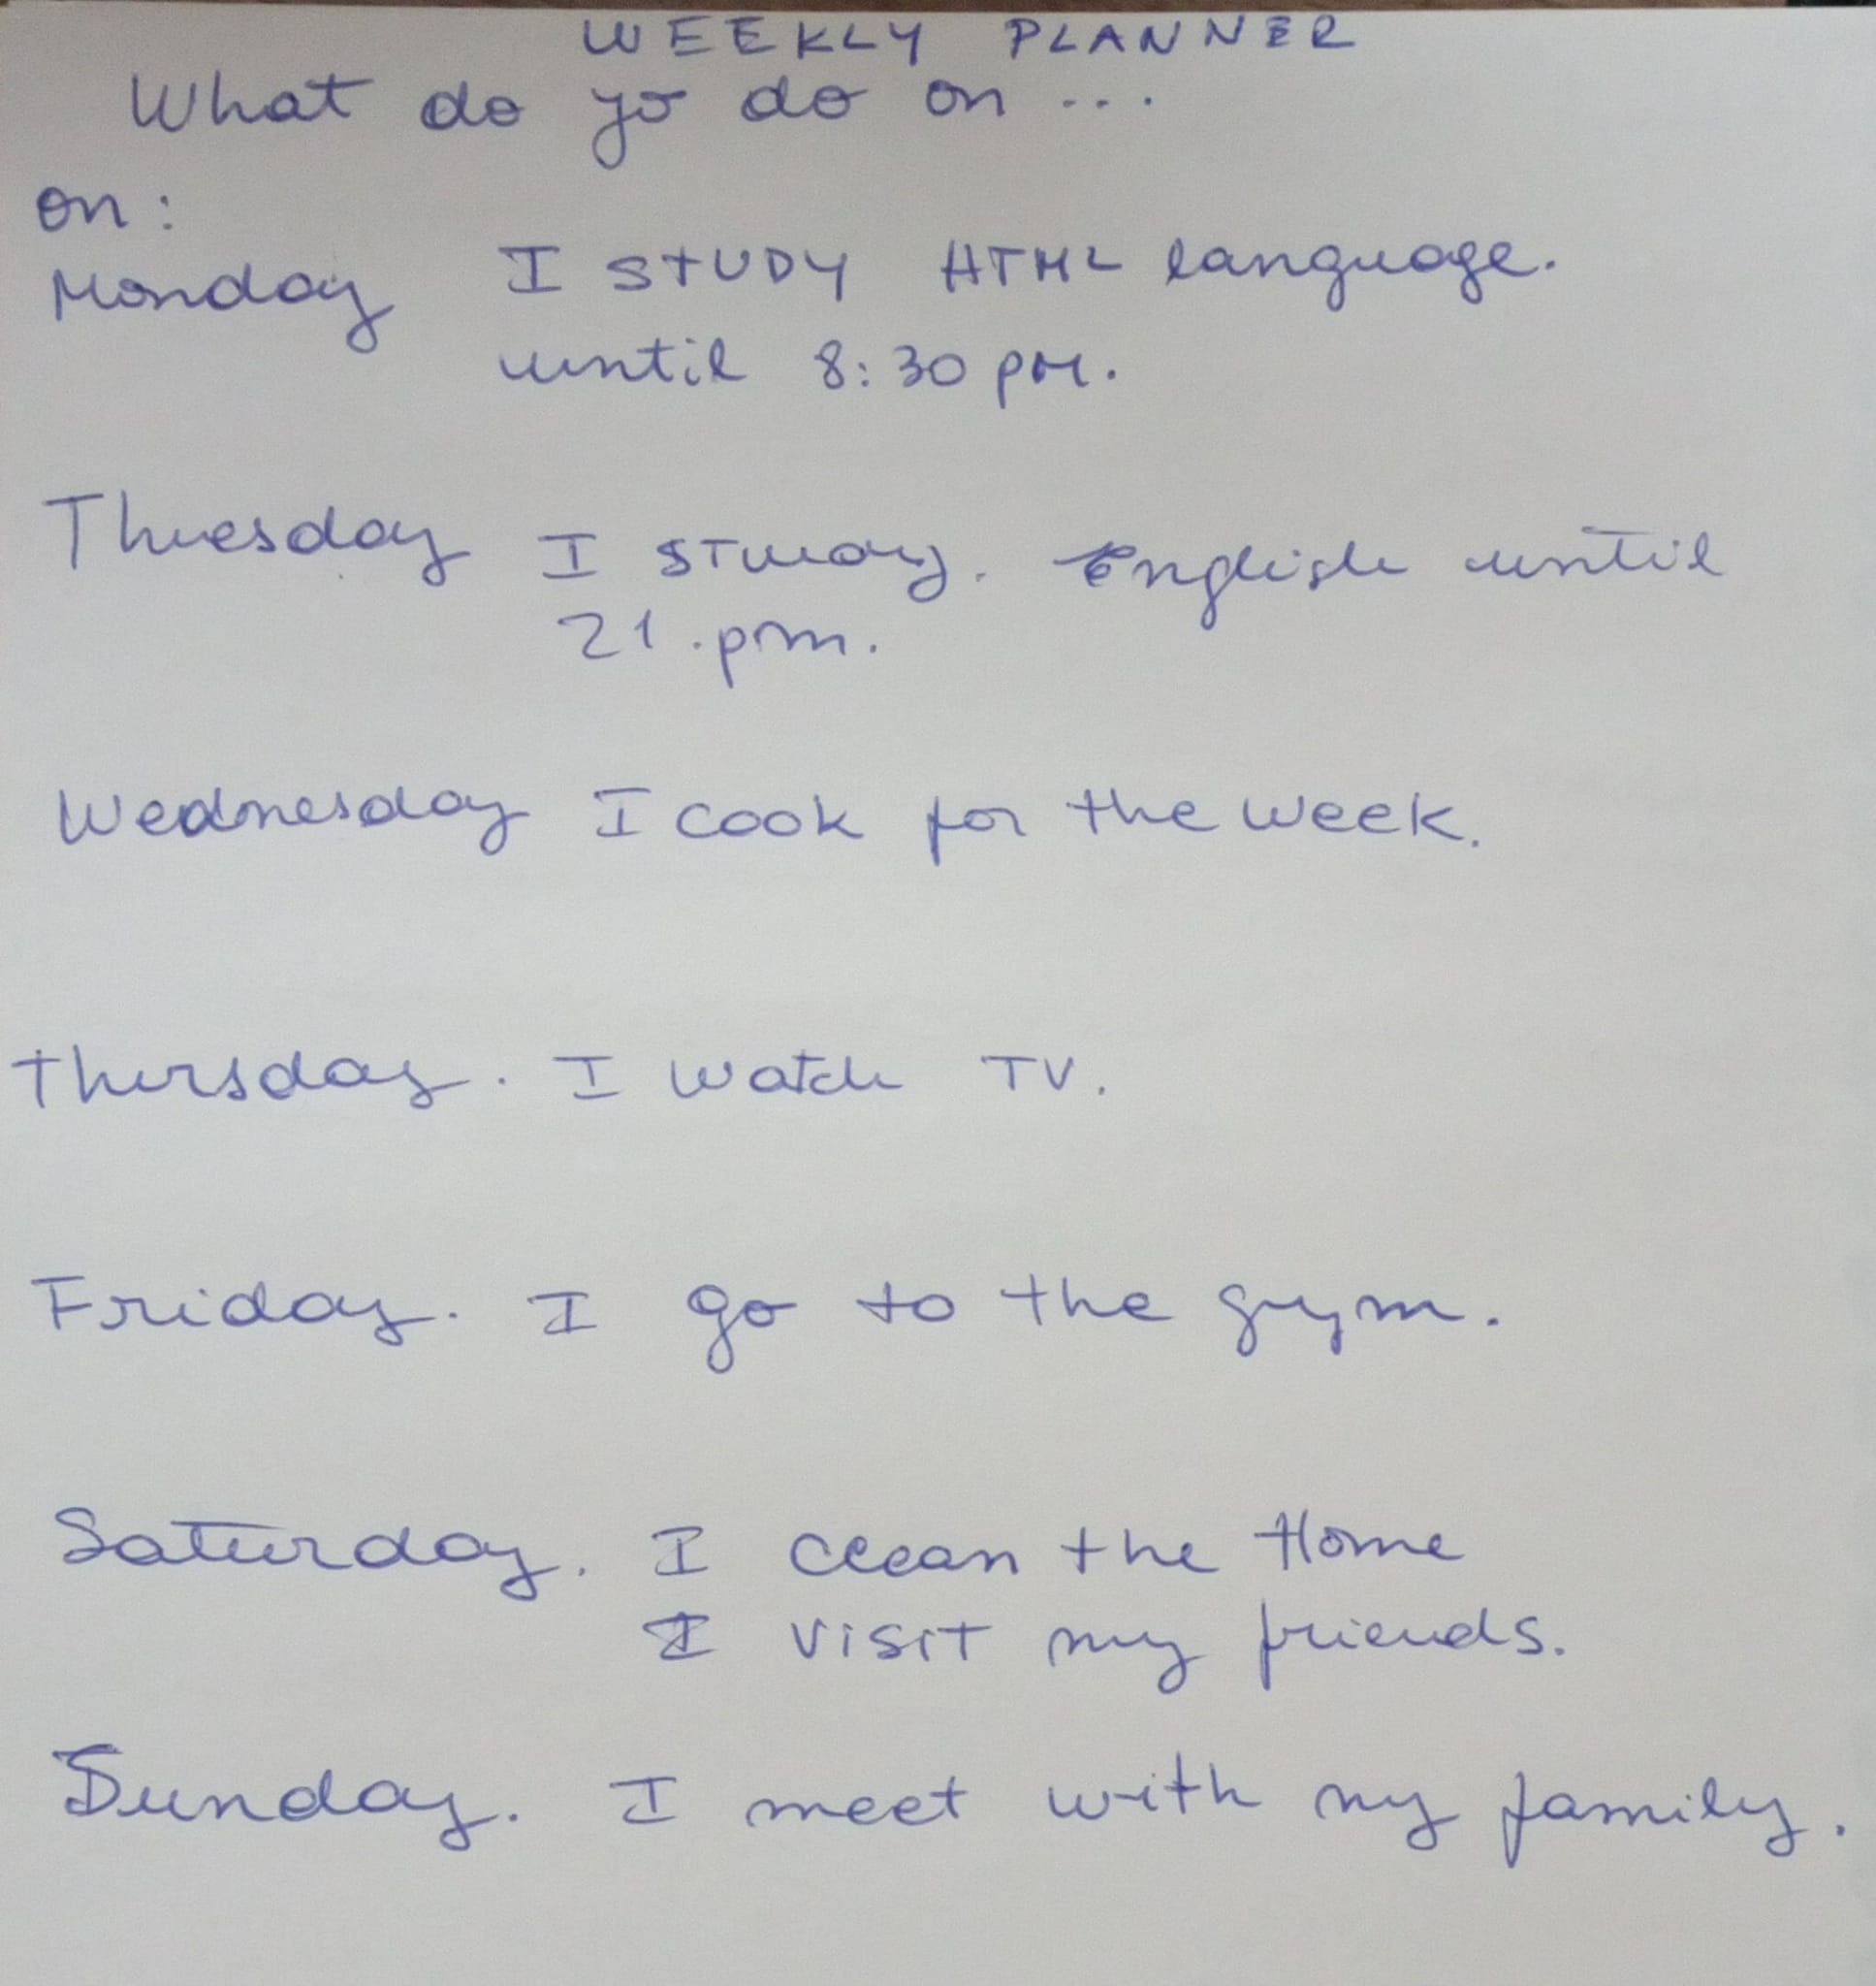 WEEKLY PLANNER
What do yo do on ...
on:
Monday I STUDY HTML language.
until 8:30 pm.
Thuesday I study. English until
21.pm.
Wednesday I cook for the week.
Thursday. I watch TV.
Friday. I go to the gym.
Saturday. I clean the Home
I visit my friends.
Sunday. I meet with my family.